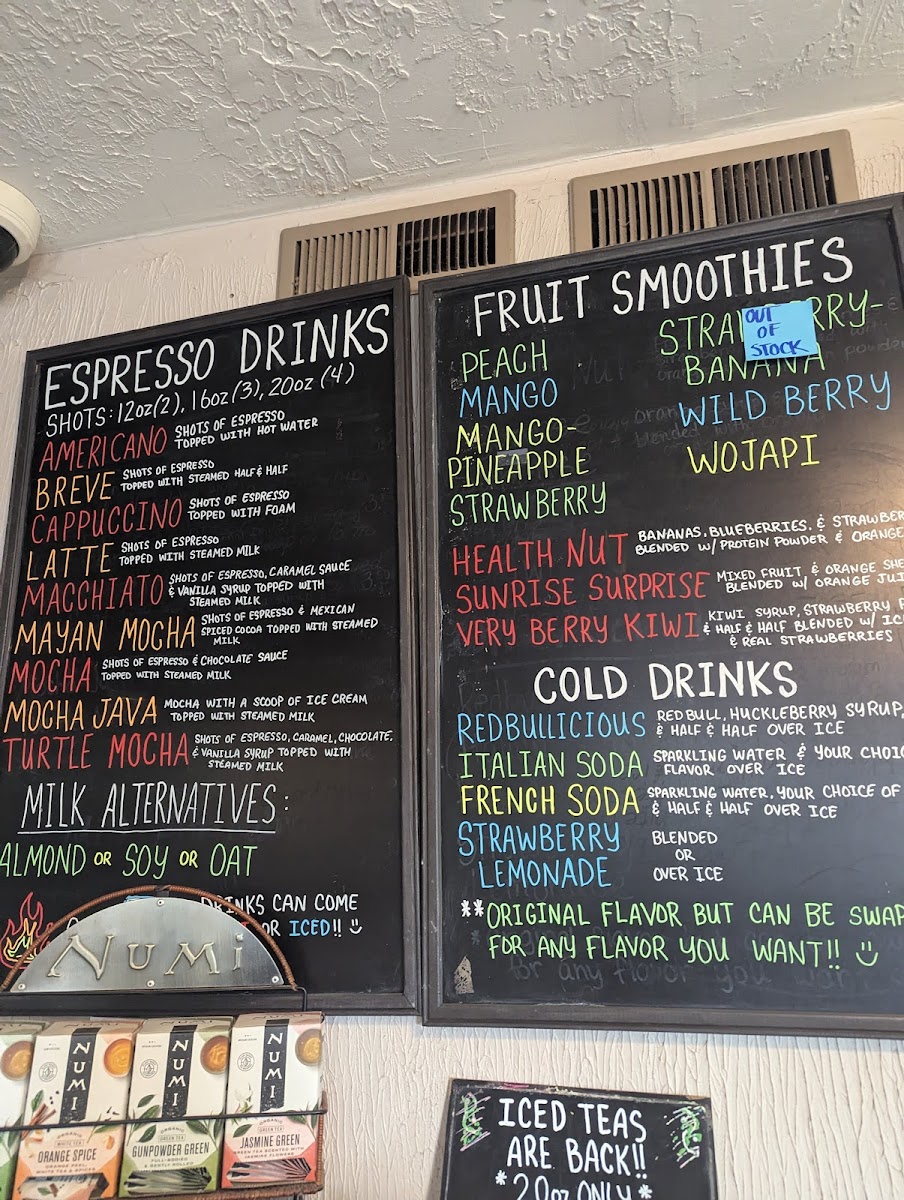 ESPRESSO DRINKS
SHOTS: 12oz (2), 16oz (3), 20oz (4)
AMERICANO SHOTS OF ESPRESSO
TOPPED WITH HOT WATER
BREVE SHOTS OF ESPRESSO
TOPPED WITH STEAMED HALF & HALF
CAPPUCCINO SHOTS OF ESPRESSO
TOPPED WITH FOAM
LATTE SHOTS OF ESPRESSO
TOPPED WITH STEAMED MILK
MACCHIATO SHOTS OF ESPRESSO, CARAMEL SAUCE
& VANILLA SYRUP TOPPED WITH
STEAMED MILK
MAYAN MOCHA SHOTS OF ESPRESSO & MEXICAN
SPICED COCOA TOPPED WITH STEAMED
MILK
MOCHA SHOTS OF ESPRESSO & CHOCOLATE SAUCE
TOPPED WITH STEAMED MILK
MOCHA JAVA MOCHA WITH A SCOOP OF ICE CREAM
TOPPED WITH STEAMED MILK
TURTLE MOCHA SHOTS OF ESPRESSO, CARAMEL, CHOCOLATE,
& VANILLA SYRUP TOPPED WITH
STEAMED MILK
MILK ALTERNATIVES:
ALMOND OR SOY OR OAT
DRINKS CAN COME
OR ICED!!
FRUIT SMOOTHIES
PEACH
MANGO
MANGO-
PINEAPPLE
STRAWBERRY
OUT
OF
STOCK
BANANA
WILD BERRY
WOJAPI
HEALTH NUT BANANAS, BLUEBERRIES, &
BLENDED W/ PROTEIN POWDER & ORANGE
SUNRISE SURPRISE MIXED FRUIT & ORANGE
BLENDED W/ ORANGE
VERY BERRY KIWI KIWI SYRUP, STRAWBERRY
& HALF & HALF BLENDED W/
& REAL STRAWBERRIES
COLD DRINKS
REDBULLICIOUS RED BULL, HUCKLEBERRY SYRUP,
& HALF & HALF OVER ICE
ITALIAN SODA SPARKLING WATER & YOUR
FLAVOR OVER ICE
FRENCH SODA SPARKLING WATER, YOUR CHOICE OF
& HALF & HALF OVER ICE
STRAWBERRY
LEMONADE
BLENDED
OR
OVER ICE
**ORIGINAL FLAVOR BUT CAN BE
FOR ANY FLAVOR YOU WANT!!
NUMI
NUMI
ORGANIC
WHITE TEA
ORANGE SPICE
ORANGE PEEL,
WHITE TEA & SPICES
NUMI
ORGANIC
GREEN TEA
GUNPOWDER GREEN
FULL-BODIED
& GENTLY ROLLED
NUMI
ORGANIC
GREEN TEA
JASMINE GREEN
GREEN TEA SCENTED WITH
JASMINE FLOWERS
ICED TEAS
ARE BACK!!
*20oz ONLY*